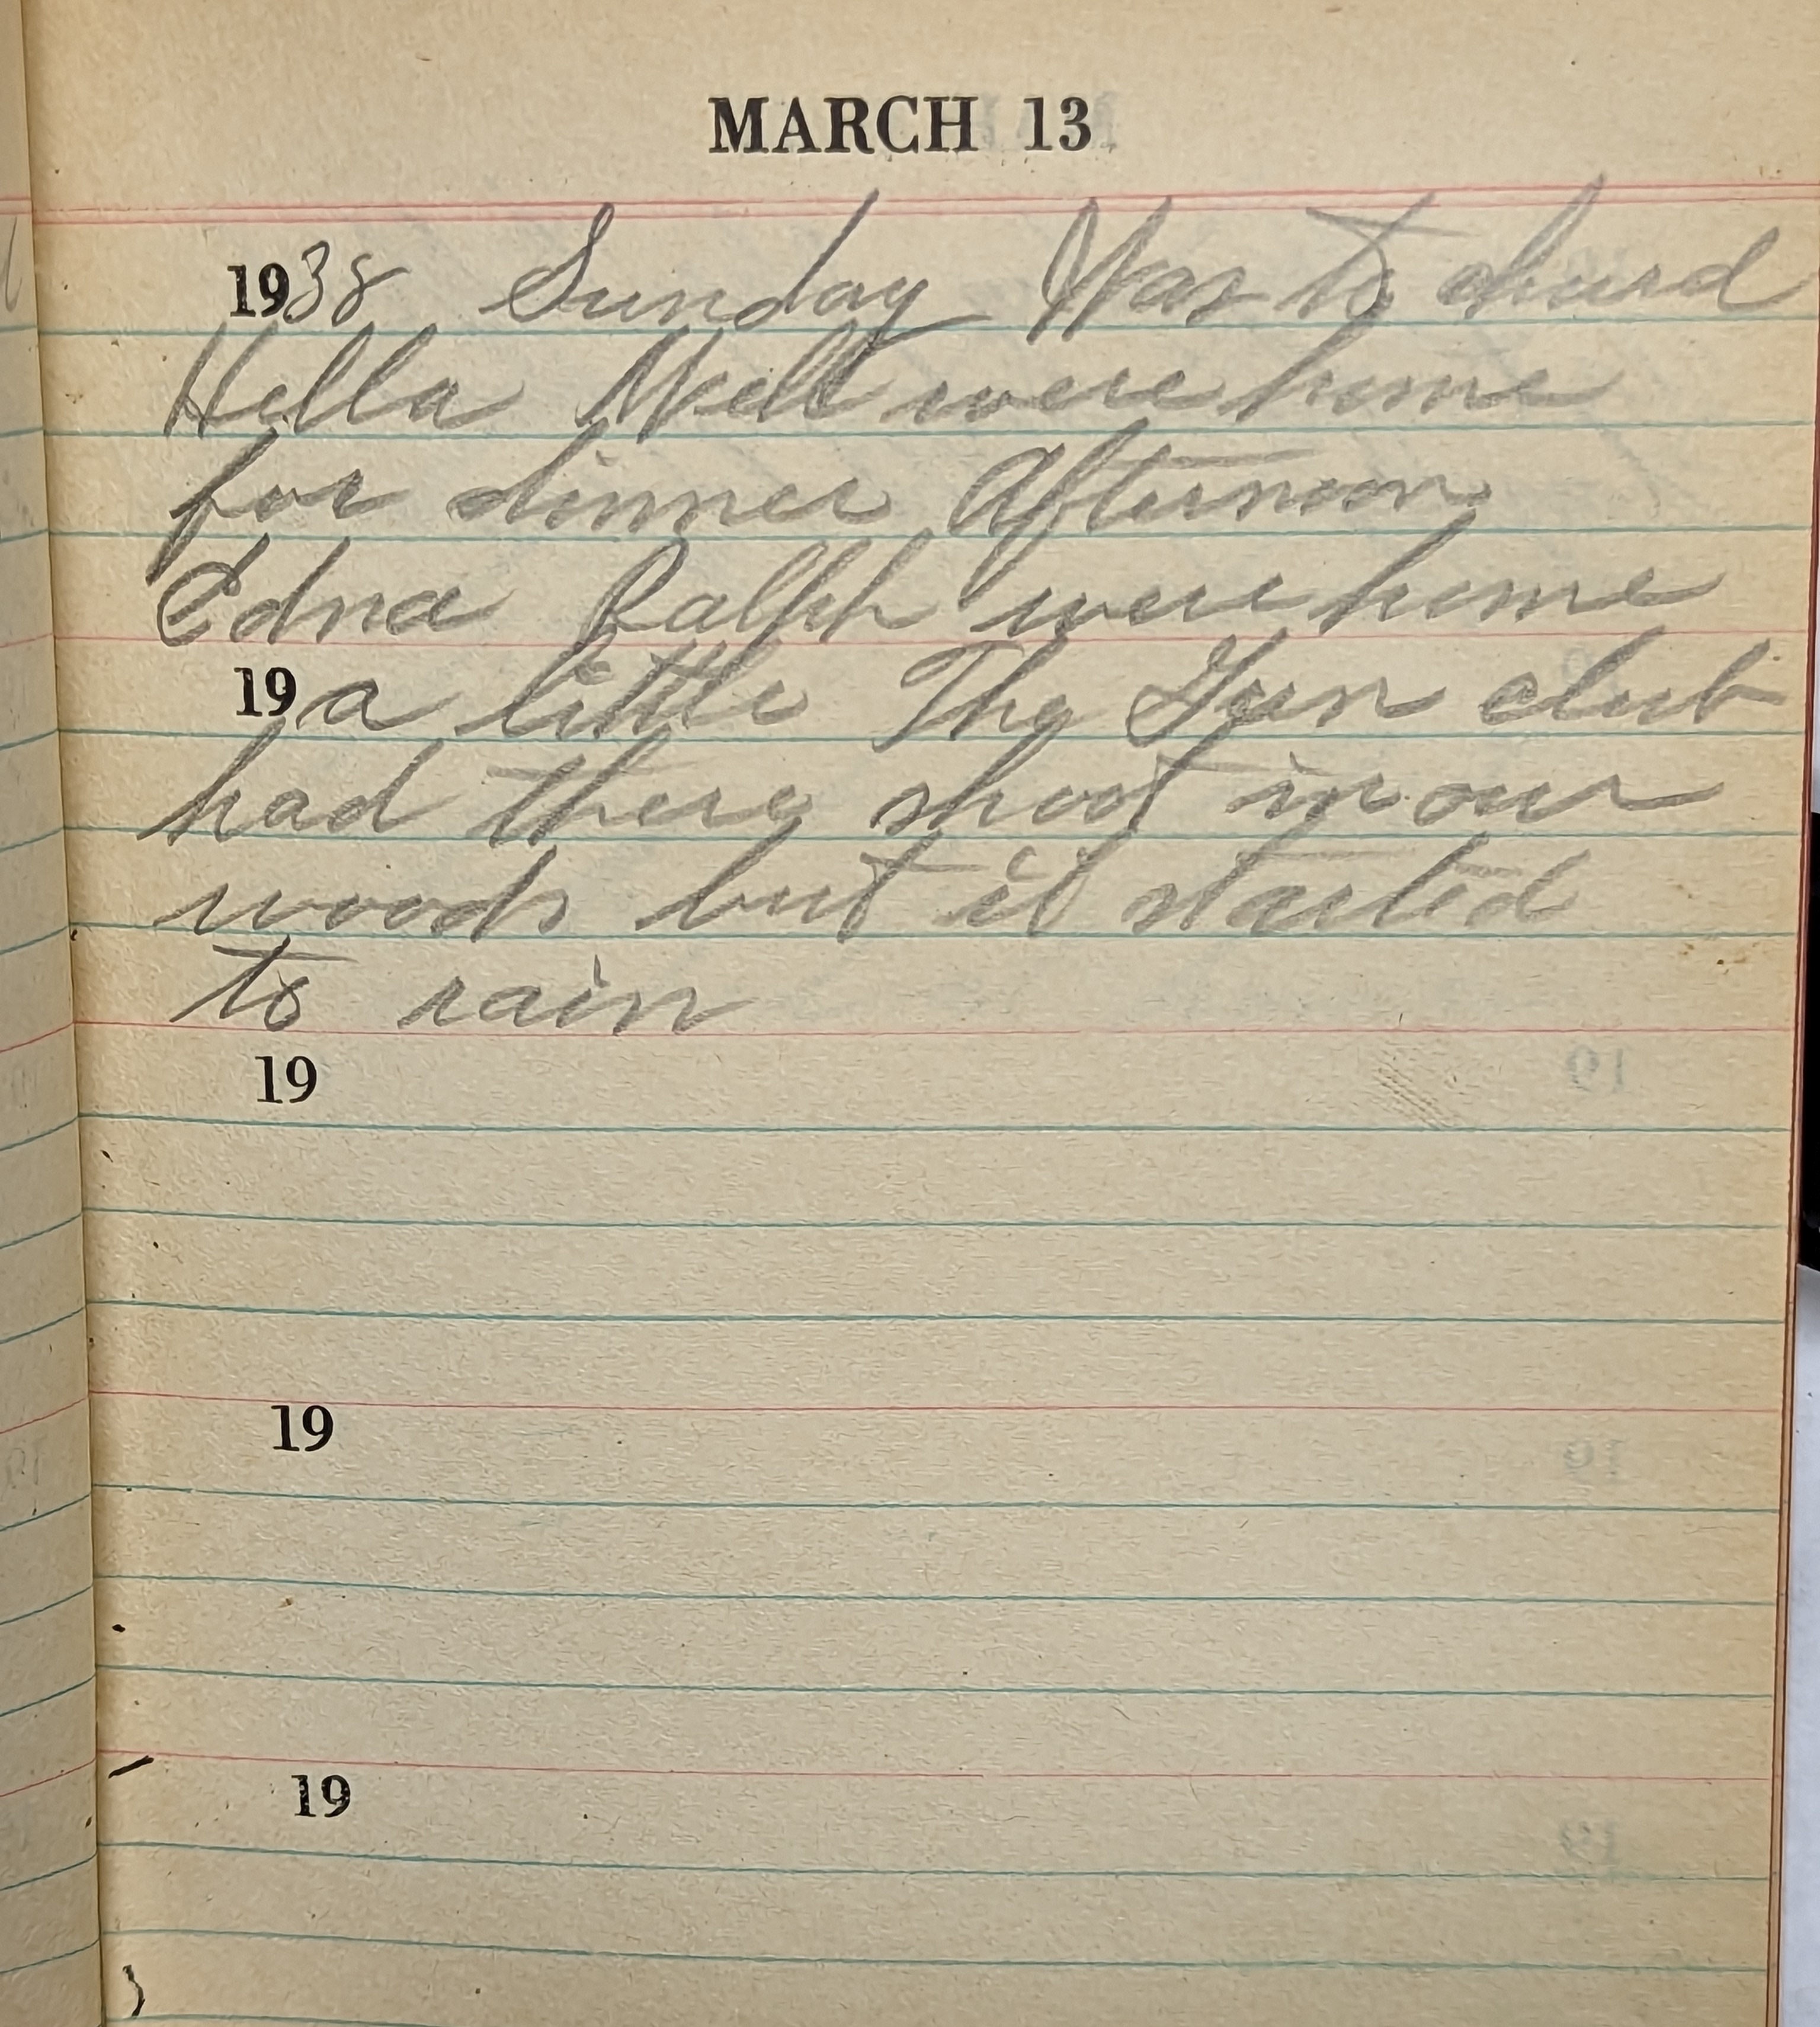 MARCH 13
1938 Sunday Was to church
Hella Melt were home
for dinner Afternoon
Edna Ralph were home
19 a little The Gun club
had there shoot in our
woods but it started
to rain
19
19
19